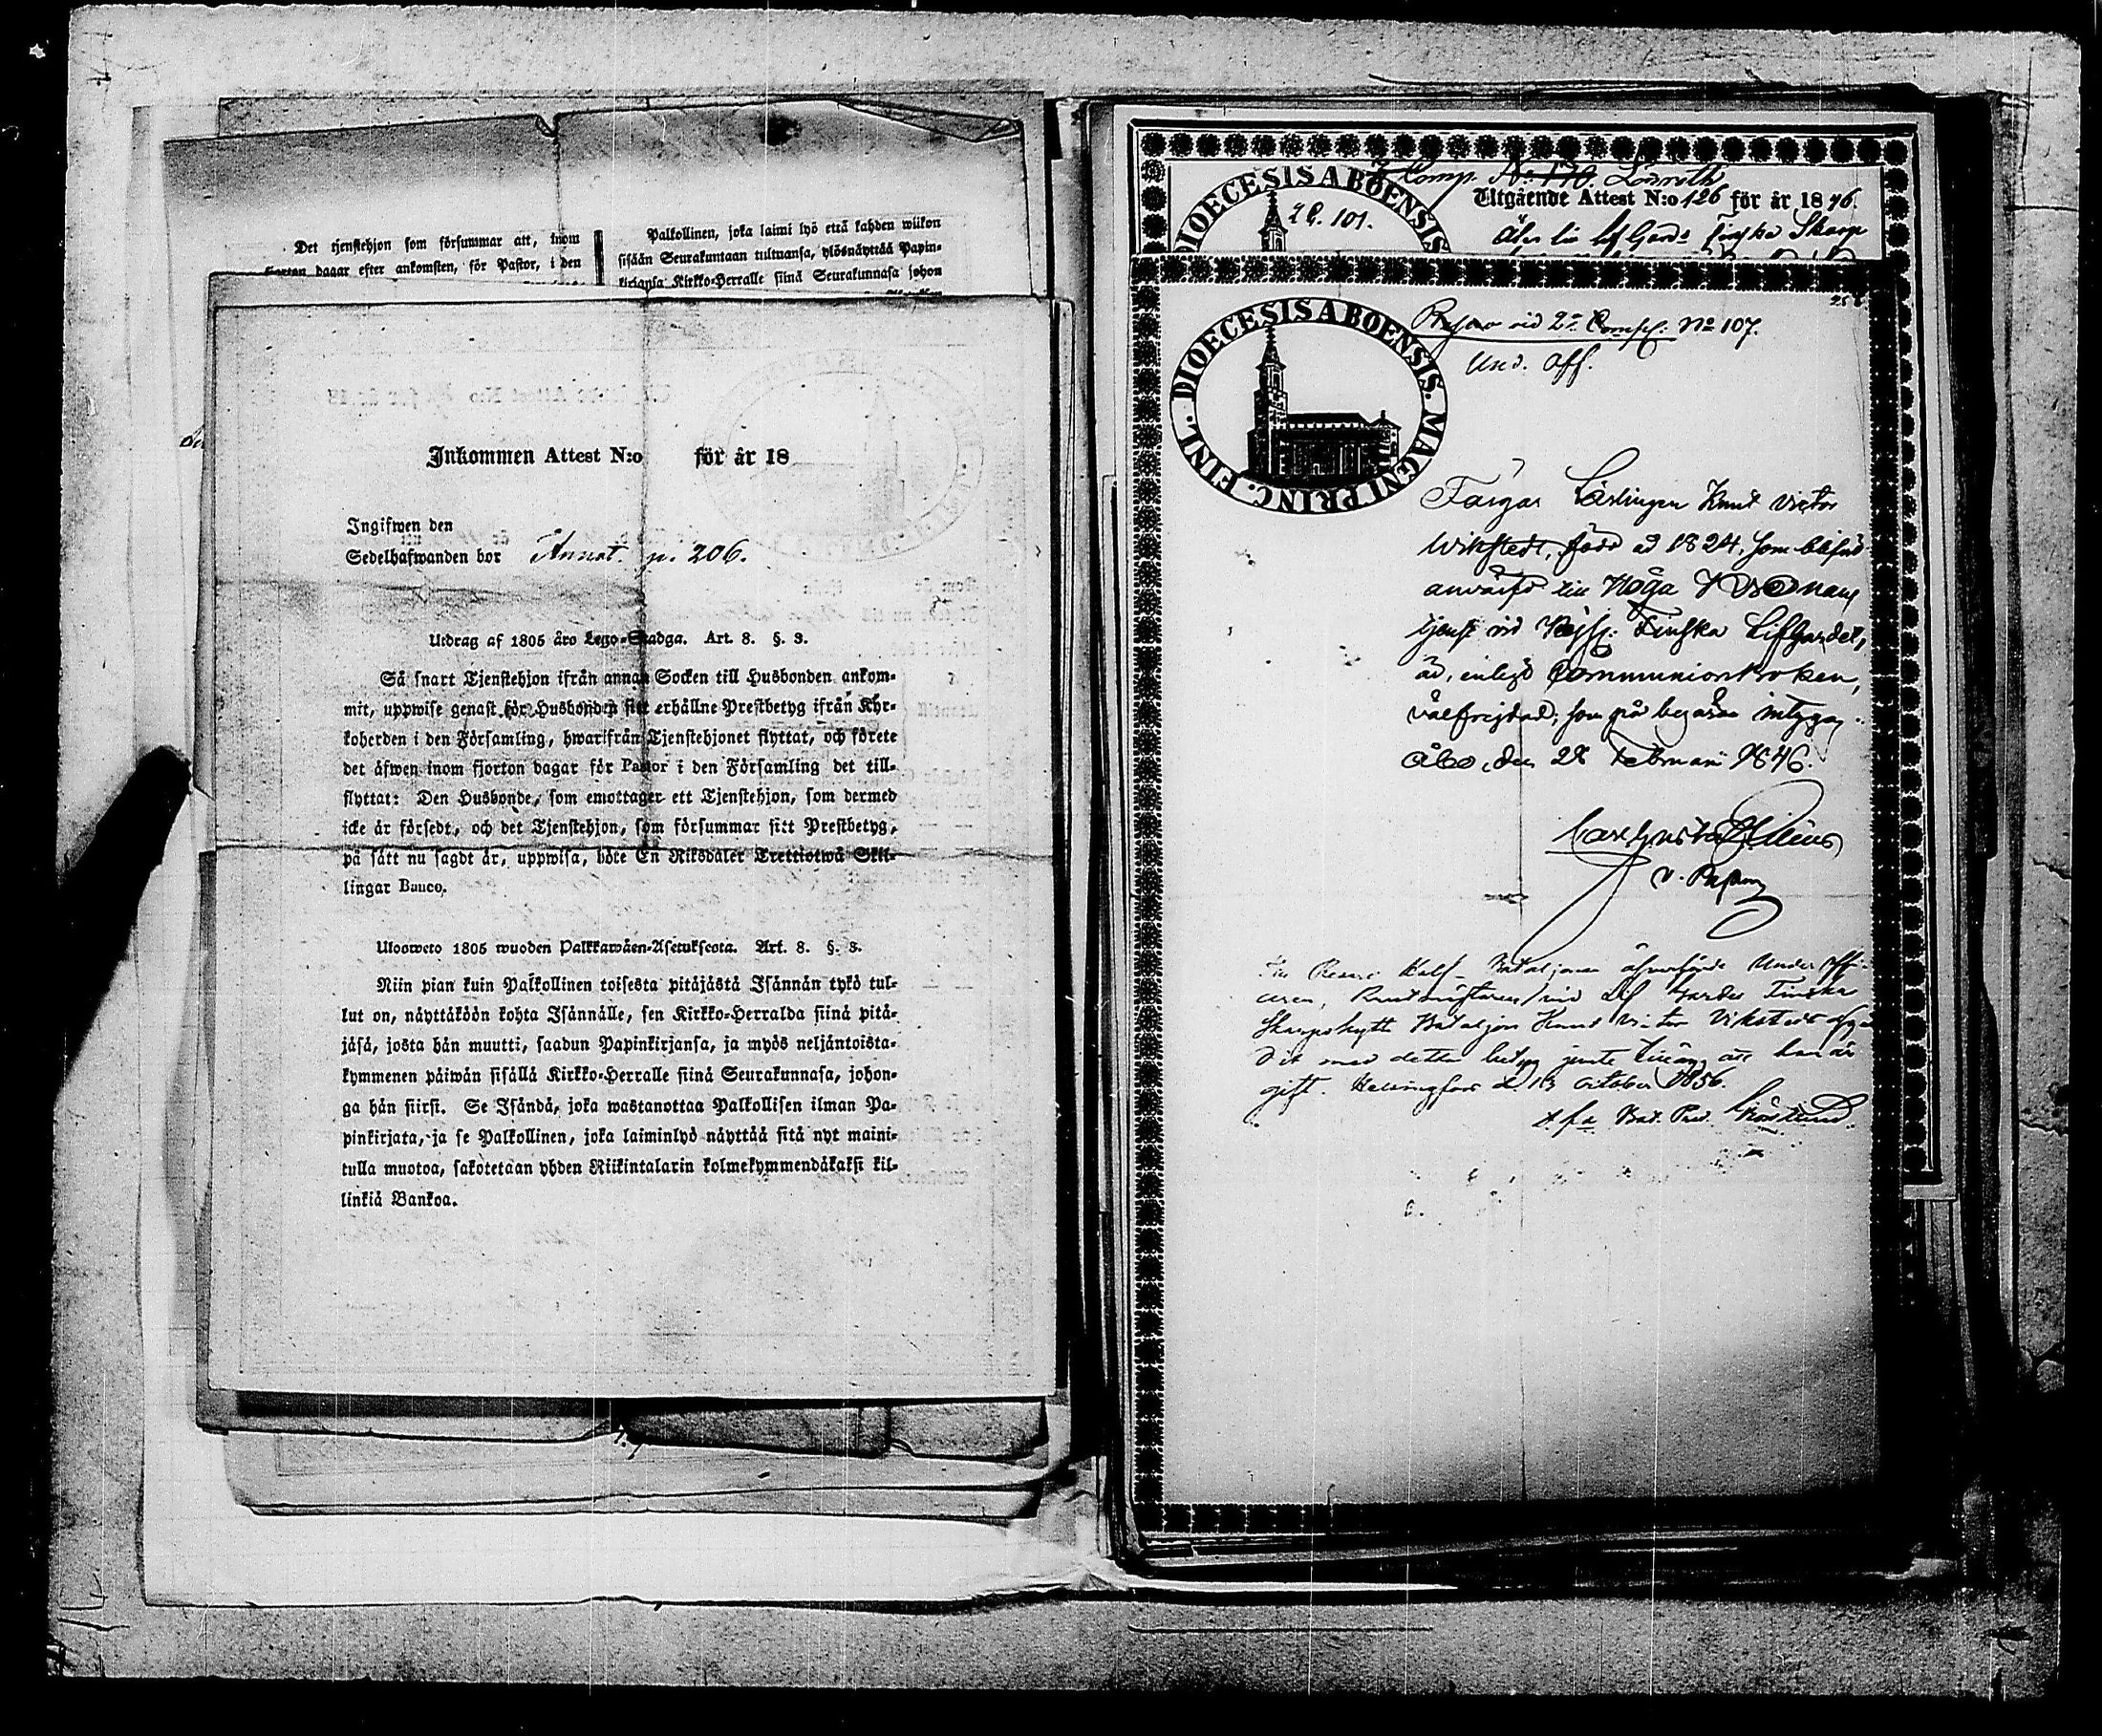 Det tjenstehjon som försummar att, inom
dagar efter ankomsten, för Pastor, i den
Palkollinen, joka laimi lyö että kahden wiikon
sisään Seurakuntaan tultuansa, ylösnäyttää Papin-
kirjansa Kirkko-Herralle siinä Seurakunnasa johon
Inkommen Attest N:o för år 18
Ingifwen den
Sedelhafwanden bor Annot. p. 206.
Utdrag af 1805 års Lego-Stadga. Art. 8. §. 3.
Så snart Tjenstehjon ifrån annan Socken till Husbonden ankom-
mit, uppwise genast för Husbonden sitt erhållne Prestbetyg ifrån Kyr-
koherden i den Församling, hwarifrån Tjenstehjonet flyttat, och förete
det äfwen inom fjorton dagar för Pastor i den Församling det till-
flyttat: Den Husbonde, som emottager ett Tjenstehjon, som dermed
icke är försedt, och det Tjenstehjon, som försummar sitt Prestbetyg,
på sätt nu sagdt är, uppwisa, böte En Riksdaler Trettiotwå Skil-
lingar Banco.
Ulosweto 1805 wuoden Palkkawäen-Asetuksesta. Art. 8. §. 3.
Niin pian kuin Palkollinen toisesta pitäjästä Isännän tykö tul-
lut on, näyttäköön kohta Isännälle, sen Kirkko-Herralda siinä pitä-
jäsä, josta hän muutti, saadun Papinkirjansa, ja myös neljäntoista-
kymmenen päiwän sisällä Kirkko-Herralle siinä Seurakunnasa, johon-
ga hän siirsi. Se Isändä, joka wastanottaa Palkollisen ilman Pa-
pinkirjata, ja se Palkollinen, joka laiminlyö näyttää sitä nyt maini-
tulla muotoa, sakotetaan yhden Riikintalarin kolmekymmendäkaksi kil-
linkiä Bankoa.
Comp. No 170. Lönroth
DIOECESIS ABOENSIS
2 C. 101.
Utgående Attest N:o 126 för år 1846.
Lif Gardes Finska Skarp
DIOECESIS ABOENSIS. MAGNI PRINC. FINL.
vid 2:a Comp. No 107.
Und. Off.
Färgar Lärlingen Knut Victor
Wikstedt, född år 1824, som blifvit
antill Höga Krono
tjenst vid Kejs: Finska Lifgardet,
är, enligt Communionboken,
välfrejdad; som på begäran intygar
Åbo, den 28 Februari 1846.
Carl Gustaf
v. Pastor
Till Reserv Bataljonen öfverförde Underoffi-
ceren, vid Lif Gardes Finska
Skarpskytte Bataljon Knut Victor Vikstedt
med detta betyg jemte att han är
gift. Helsingfors d. 13 October 1856.
Bat. Pred.